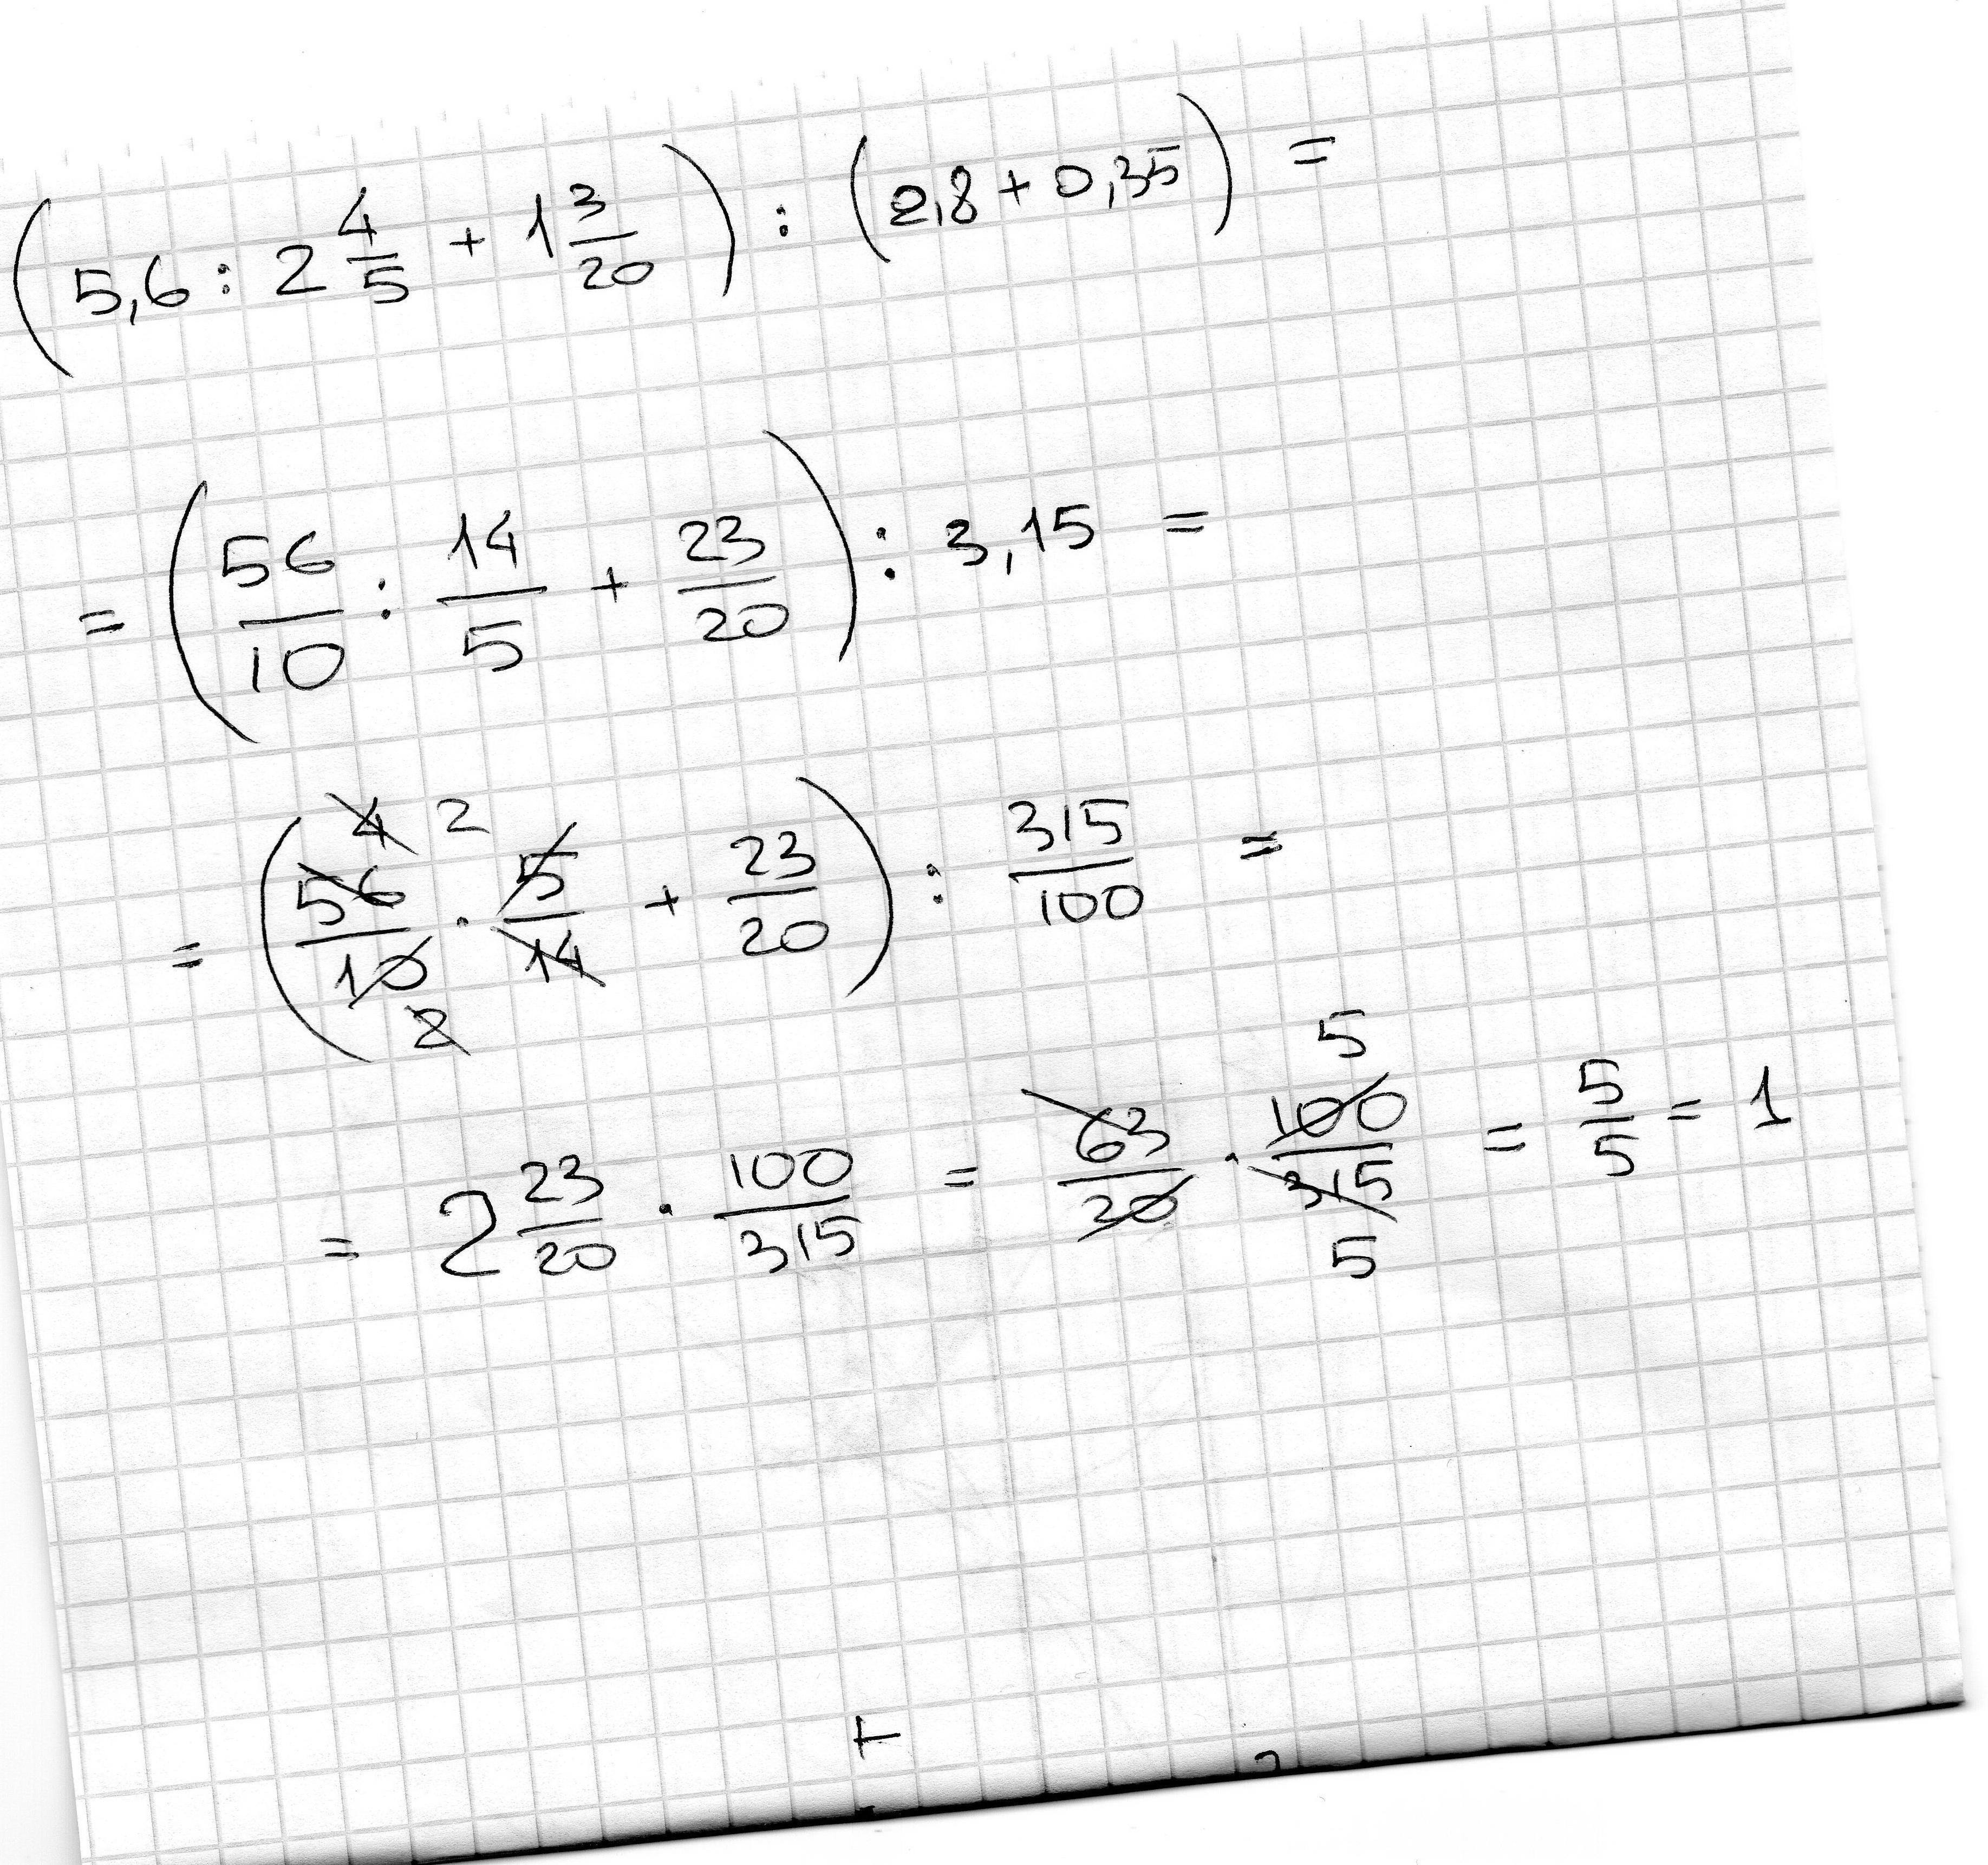 (5,6 : 2 4/5 + 1 3/20) : (2,8 + 0,35) =
= (56/10 : 14/5 + 23/20) : 3,15 =
4 2
= (56/10 · 5/14 + 23/20) : 315/100 =
2
5
= 2 23/20 · 100/315 = 63/20 · 100/315 = 5/5 = 1
5